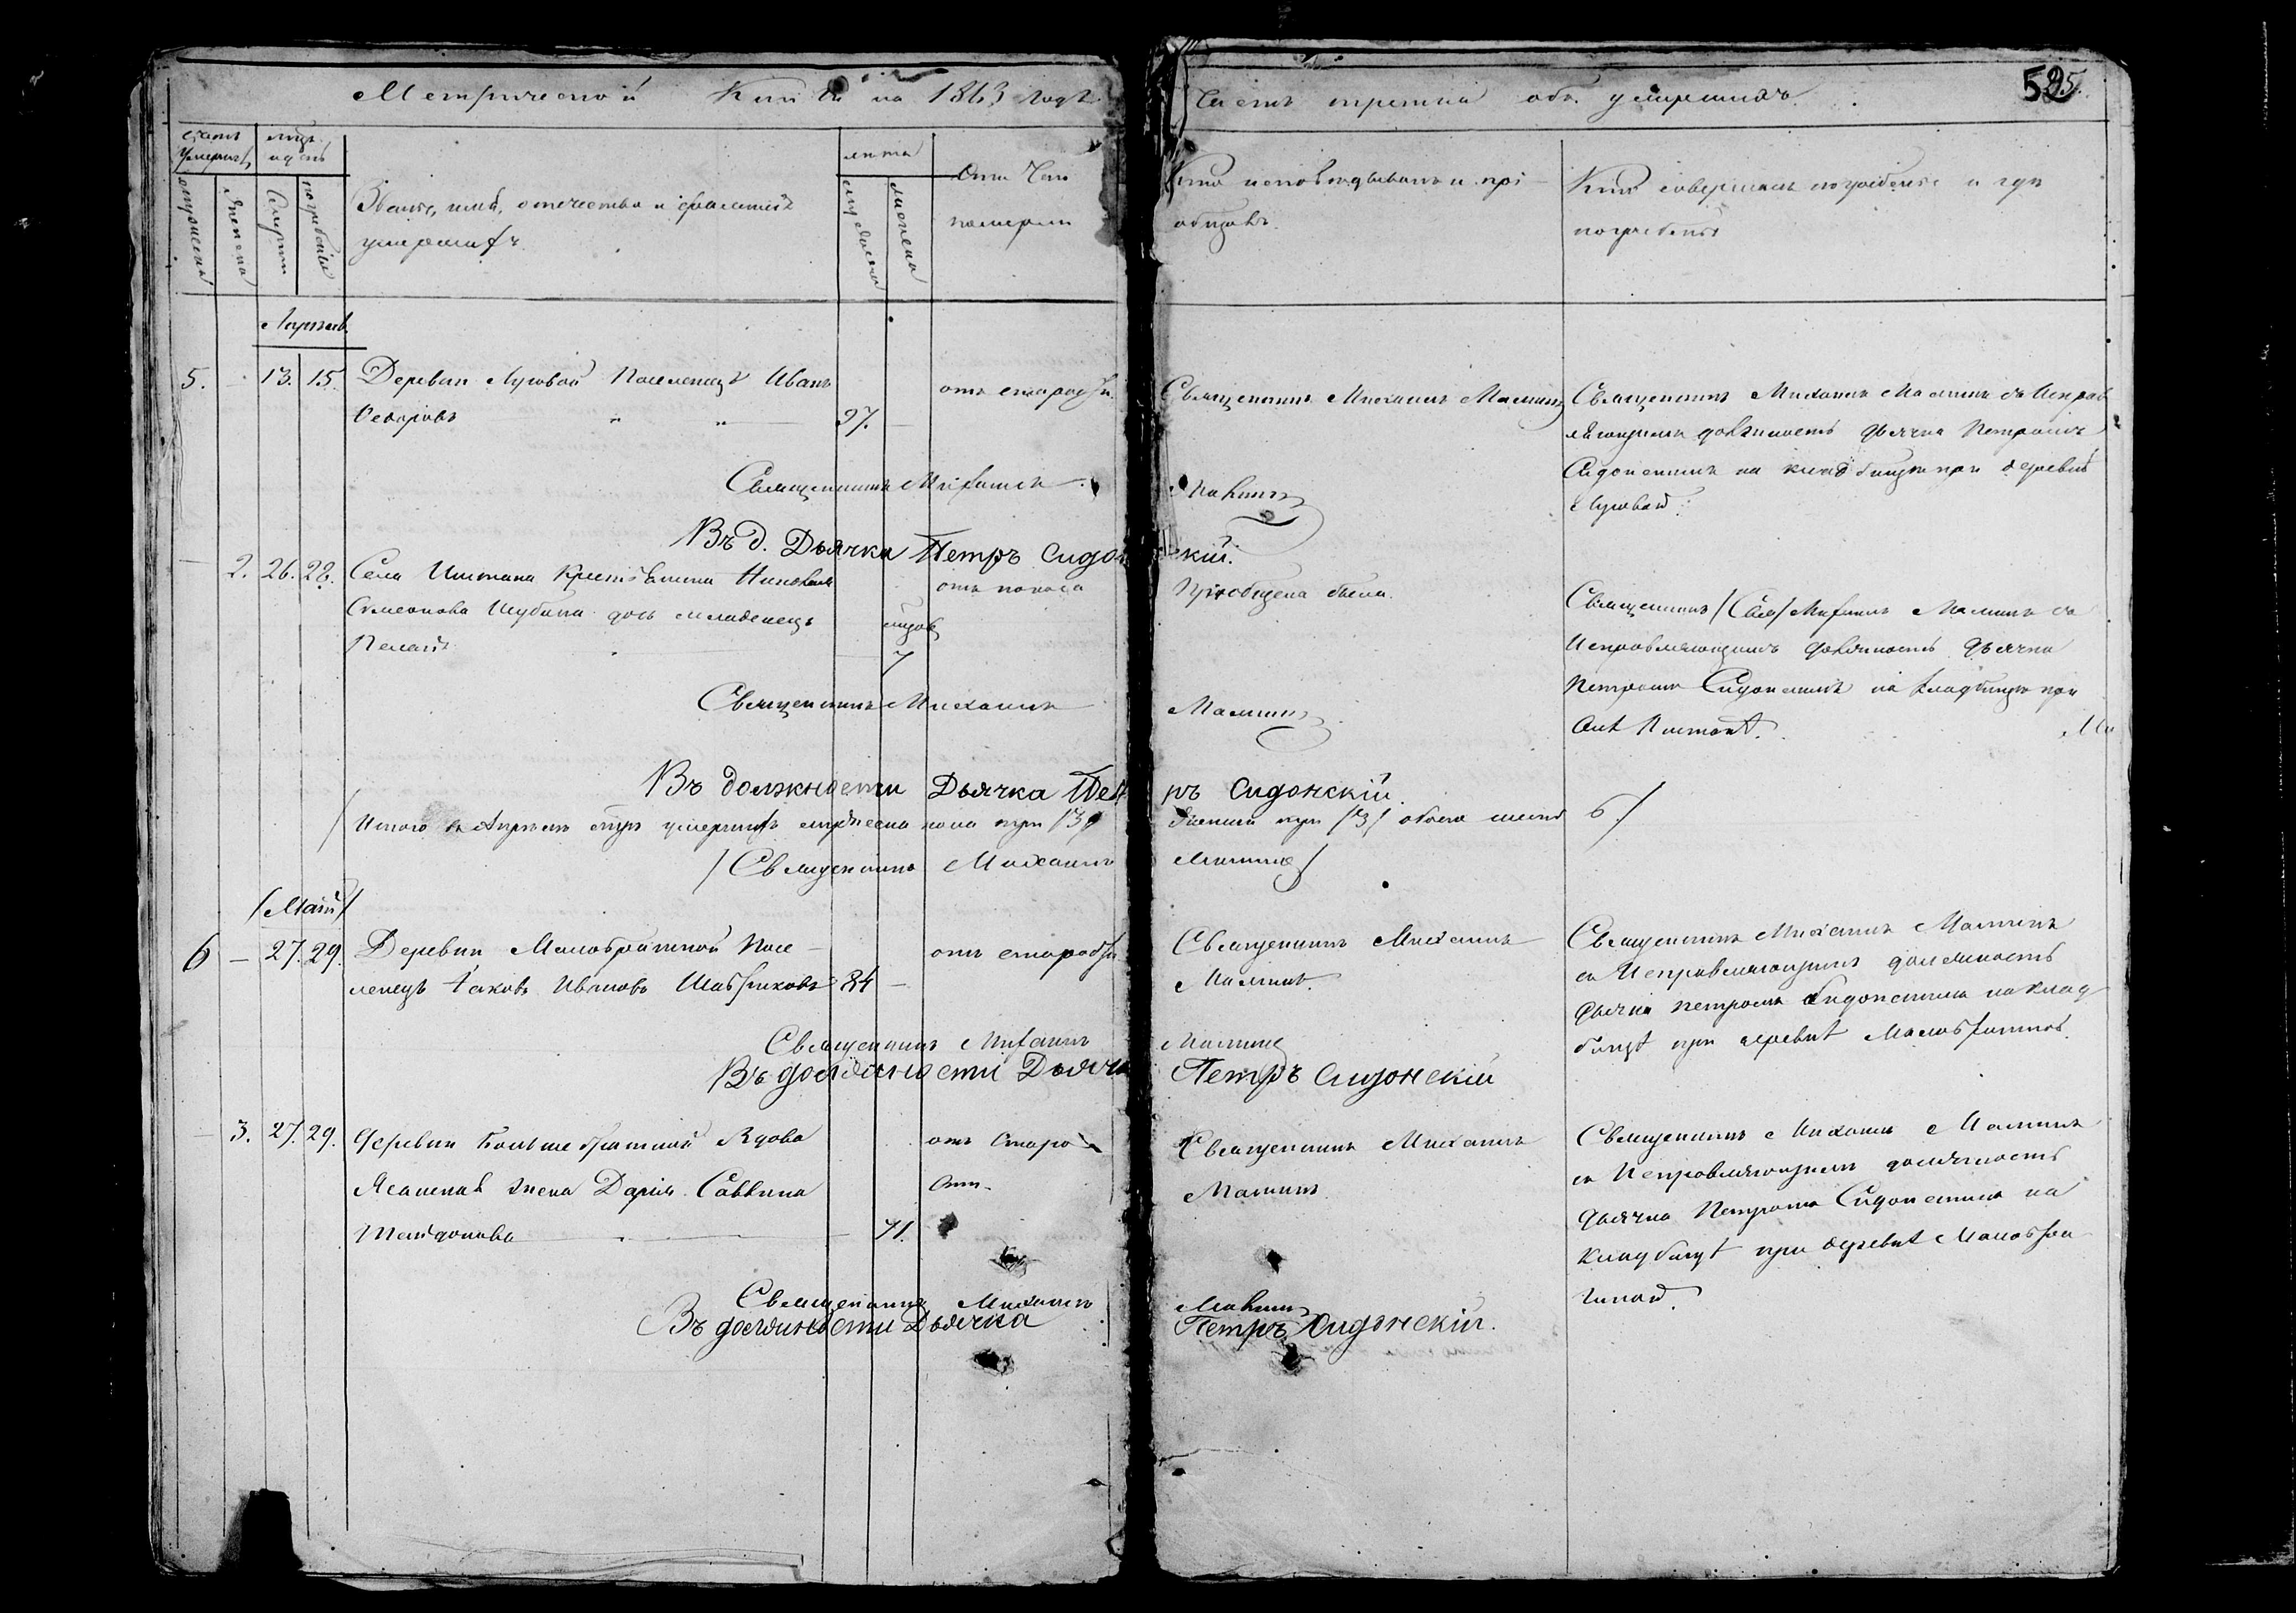 Метрической Книги на 1863 годъ.
Часть третiя объ умершихъ.
525.
счетъ умершихъ
мужеска
женска
мѣсяцъ и день
смерти
погребенiя
Званiе, имя, отечество и фамилiя
умершихъ.
лѣта
мужеска
женска
Отъ чего
померли
Кто исповѣдывалъ и прi-
общалъ.
Кто совершалъ погребенiе и гдѣ
погребены
Апрѣль
5. - 13. 15. Деревни Луговой Поселенецъ Иванъ
Ѳедоровъ 97.
отъ старости.
Священникъ Михаилъ Малининъ
Священникъ Михаилъ Малининъ съ Исправ
ляющимъ должность Дьячка Петромъ
Сидонскимъ на кладбищѣ при деревнѣ
Луговой.
Священникъ Михаилъ Малининъ
Въ д. Дьячка Петръ Сидонскiй.
- 2. 26. 28. Села Крестьянина
Симеонова Шубина дочь младенецъ
Пелагiя мѣсяц 7
отъ поноса
Прiобщена была.
Священникъ Михаилъ Малининъ съ
Исправляющимъ должность Дьячка
Петромъ Сидонскимъ на кладбищѣ при
Священникъ Михаилъ Малининъ
Въ должности Дьячка Петръ Сидонскiй.
Итого въ Апрѣлѣ мцѣ умершихъ мужеска пола три /3/ женска три /3/ обоего шесть 6/
/Священникъ Михаилъ Малининъ/
/Май/
6 - 27. 29. Деревни Малобратской Посе-
ленецъ Iаковъ Ивановъ 84 -
отъ старости
Священникъ Михаилъ
Малининъ.
Священникъ Михаилъ Малининъ
съ Исправляющимъ должность
Дьячка Петромъ Сидонскимъ на клад-
бищѣ при деревнѣ
Священникъ Михаилъ Малининъ
Въ должности Дьячка Петръ Сидонскiй
- 3. 27. 29. Деревни Вдова
жена Дарiя Саввина
71.
отъ Старо
сти.
Священникъ Михаилъ
Малининъ.
Священникъ Михаилъ Малининъ
съ Исправляющимъ должность
Дьячка Петромъ Сидонскимъ на
кладбищѣ при деревнѣ
Священникъ Михаилъ Малининъ
Въ должности Дьячка Петръ Сидонскiй.